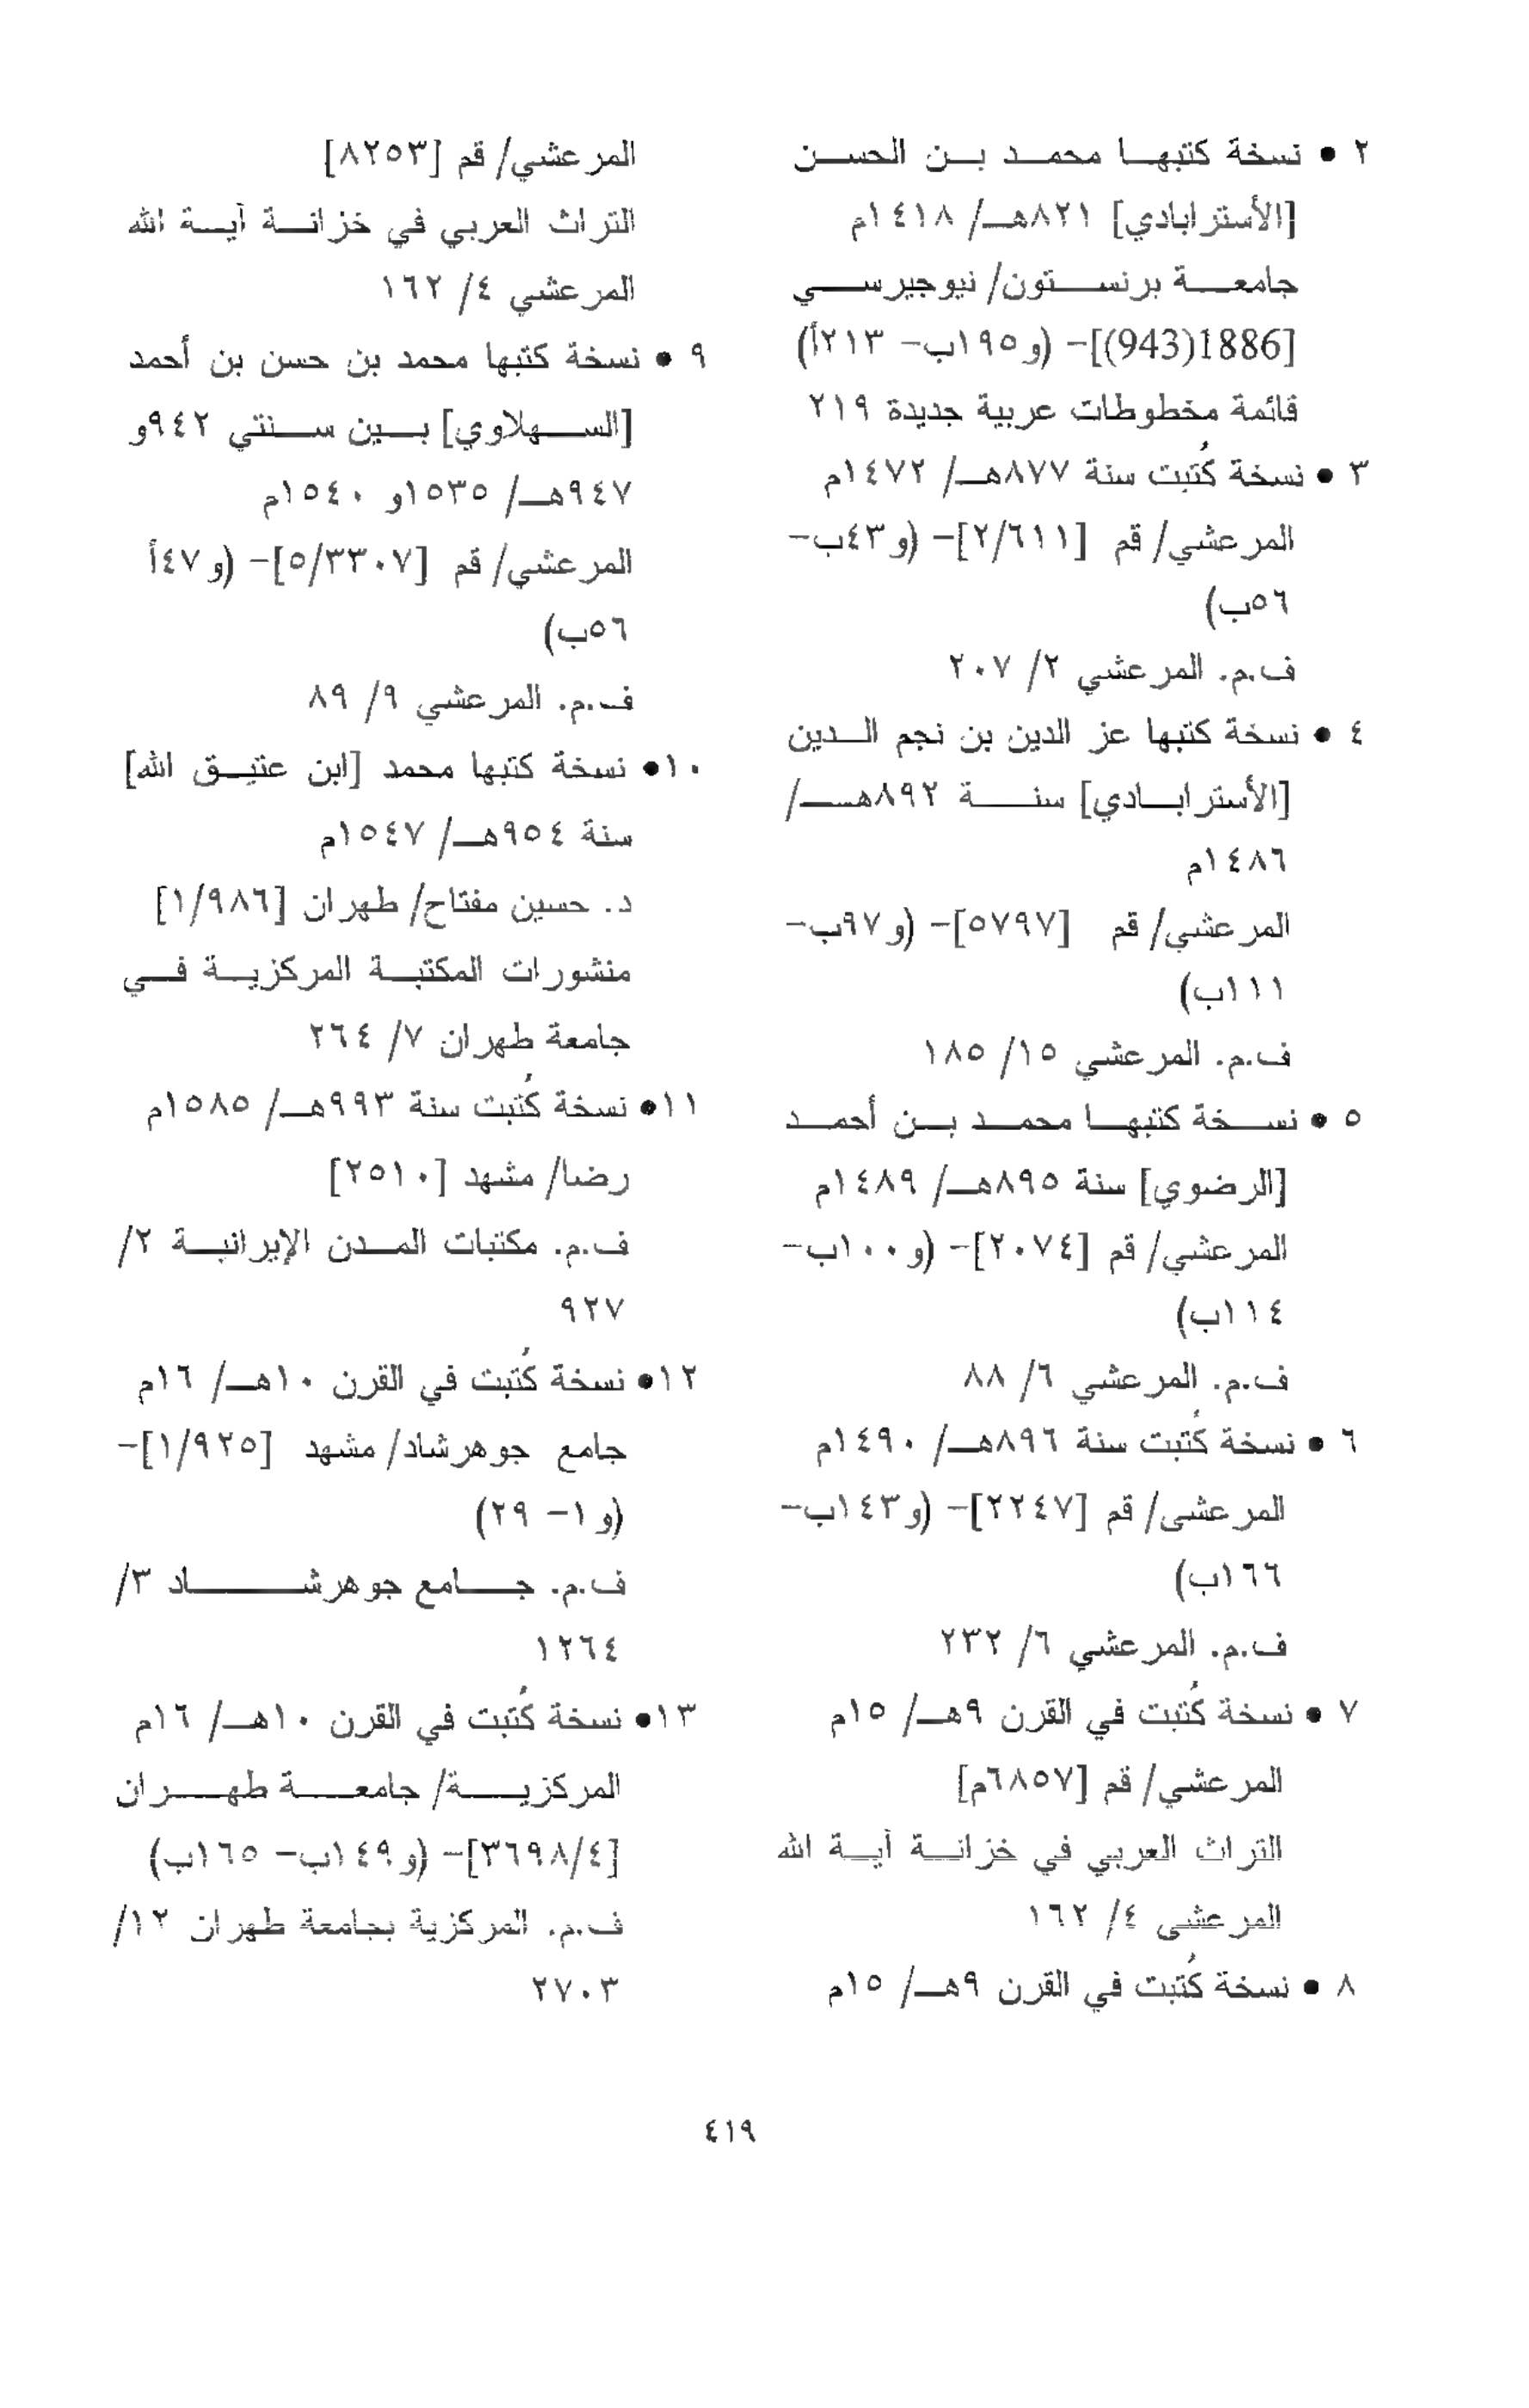 ٢ • نسخة كتبها محمد بن الحسن
[الأسترابادي] ٨٢١هـ/ ١٤١٨م
جامعة برنستون/ نيوجيرسي
[1886(943)]- (و١٩٥ب- ٢١٣أ)
قائمة مخطوطات عربية جديدة ٢١٩
٣ • نسخة كُتبت سنة ٨٧٧هـ/ ١٤٧٢م
المرعشي/ قم [٢/٦١١]- (و٤٣ب-
٥٦ب)
ف.م. المرعشي ٢/ ٢٠٧
٤ • نسخة كتبها عز الدين بن نجم الدين
[الأسترابادي] سنة ٨٩٢هـ/
١٤٨٦م
المرعشي/ قم [٥٧٩٧]- (و٩٧ب-
١١١ب)
ف.م. المرعشي ١٥/ ١٨٥
٥ • نسخة كتبها محمد بن أحمد
[الرضوي] سنة ٨٩٥هـ/ ١٤٨٩م
المرعشي/ قم [٢٠٧٤]- (و١٠٠ب-
١١٤ب)
ف.م. المرعشي ٦/ ٨٨
٦ • نسخة كُتبت سنة ٨٩٦هـ/ ١٤٩٠م
المرعشى/ قم [٢٢٤٧]- (و١٤٣ب-
١٦٦ب)
ف.م. المرعشي ٦/ ٢٣٢
٧ • نسخة كُتبت في القرن ٩هـ/ ١٥م
المرعشي/ قم [٦٨٥٧م]
التراث العربي في خزانة آية الله
المرعشى ٤/ ١٦٢
٨ • نسخة كُتبت في القرن ٩هـ/ ١٥م
المرعشي/ قم [٨٢٥٣]
التراث العربي في خزانة آية الله
المرعشي ٤/ ١٦٢
٩ • نسخة كتبها محمد بن حسن بن أحمد
[السهلاوي] بين سنتي ٩٤٢و
٩٤٧هـ/ ١٥٣٥و ١٥٤٠م
المرعشي/ قم [٥/٣٣٠٧]- (و٤٧أ
٥٦ب)
ف.م. المرعشي ٩/ ٨٩
١٠• نسخة كتبها محمد [ابن عتيق الله]
سنة ٩٥٤هـ/ ١٥٤٧م
د. حسين مفتاح/ طهران [١/٩٨٦]
منشورات المكتبة المركزية في
جامعة طهران ٧/ ٢٦٤
١١• نسخة كُتبت سنة ٩٩٣هـ/ ١٥٨٥م
رضا/ مشهد [٢٥١٠]
ف.م. مكتبات المدن الإيرانية ٢/
٩٢٧
١٢• نسخة كُتبت في القرن ١٠هـ/ ١٦م
جامع جوهرشاد/ مشهد [١/٩٢٥]-
(و١- ٢٩)
ف.م. جامع جوهرشاد ٣/
١٢٦٤
١٣• نسخة كُتبت في القرن ١٠هـ/ ١٦م
المركزية/ جامعة طهران
[٣٦٩٨/٤]- (و١٤٩ب- ١٦٥ب)
ف.م. المركزية بجامعة طهران ١٢/
٢٧٠٣
٤١٩